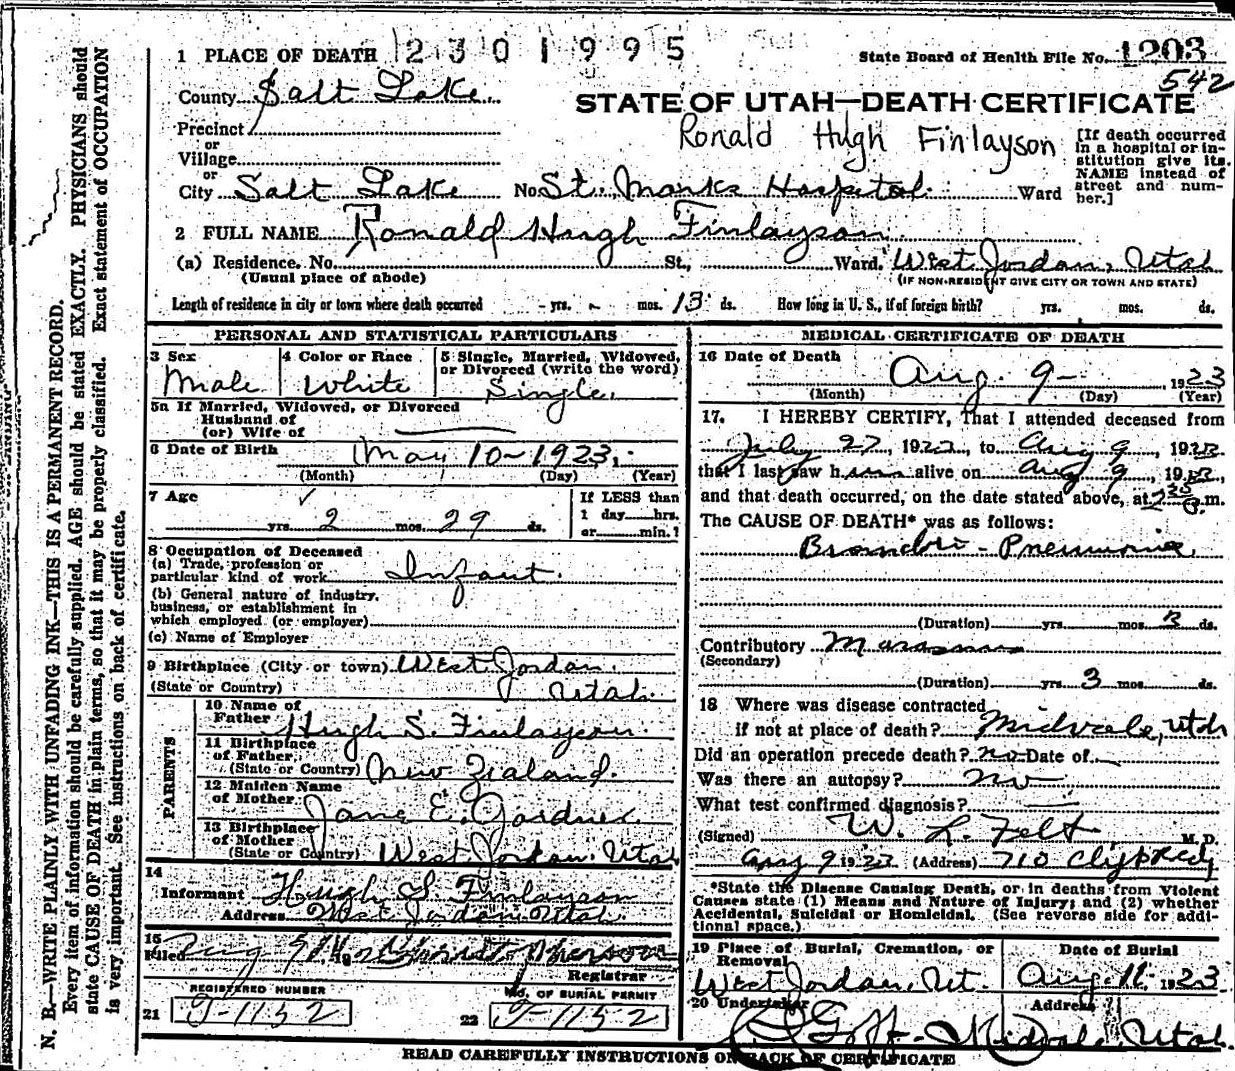 1 PLACE OF DEATH 2301995
State Board of Health File No. 1203
542
County Salt Lake.
STATE OF UTAH—DEATH CERTIFICATE
Precinct
Ronald Hugh Finlayson
[If death occurred in a hospital or institution give its NAME instead of street and number.]
or
Village
or
City Salt Lake No. St. Marks Hospital. Ward
2 FULL NAME Ronald Hugh Finlayson.
(a) Residence. No. St., Ward. West Jordan, Utah
(Usual place of abode) (IF NON-RESIDENT GIVE CITY OR TOWN AND STATE)
Length of residence in city or town where death occurred - yrs. - mos. 13 ds. How long in U. S., if of foreign birth? yrs. mos. ds.
PERSONAL AND STATISTICAL PARTICULARS
3 Sex 4 Color or Race 5 Single, Married, Widowed, or Divorced (write the word)
Male White Single.
5a If Married, Widowed, or Divorced
Husband of
(or) Wife of
6 Date of Birth May 10-1923.
(Month) (Day) (Year)
7 Age If LESS than
1 day hrs.
yrs. 2 mos. 29 ds. or min.?
8 Occupation of Deceased
(a) Trade, profession or
particular kind of work Infant.
(b) General nature of industry,
business, or establishment in
which employed (or employer)
(c) Name of Employer
9 Birthplace (City or town) West Jordan.
(State or Country) Utah.
PARENTS
10 Name of
Father Hugh S. Finlayson.
11 Birthplace
of Father
(State or Country) New Zealand.
12 Maiden Name
of Mother Jane E. Gardner.
13 Birthplace
of Mother
(State or Country) West Jordan, Utah
14
Informant Hugh S Finlayson
Address West Jordan, Utah.
15
Filed Aug 9
Registrar
REGISTERED NUMBER NO. OF BURIAL PERMIT
21 9-1152 22 9-1152
MEDICAL CERTIFICATE OF DEATH
16 Date of Death Aug. 9- 1923
(Month) (Day) (Year)
17. I HEREBY CERTIFY, That I attended deceased from
July 27, 1923, to Aug 9, 1923
that I last saw him alive on Aug 9, 1923,
and that death occurred, on the date stated above, at 2 m.
The CAUSE OF DEATH* was as follows:
Broncho-Pneumonia.
(Duration) yrs. mos. 3 ds.
Contributory Marasmus
(Secondary)
(Duration) yrs. 3 mos. ds.
18 Where was disease contracted
if not at place of death? Midvale, Utah
Did an operation precede death? no Date of
Was there an autopsy? no
What test confirmed diagnosis?
(Signed) W. L. Felt. M. D.
Aug 9 1923 (Address) 710 Clift Bldg
*State the Disease Causing Death, or in deaths from Violent
Causes state (1) Means and Nature of Injury; and (2) whether
Accidental, Suicidal or Homicidal. (See reverse side for additional space.)
19 Place of Burial, Cremation, or Removal Date of Burial
West Jordan, Ut. Aug. 11. 1923
20 Undertaker Address
Goff - Midvale, Utah.
READ CAREFULLY INSTRUCTIONS ON BACK OF CERTIFICATE
N. B.—WRITE PLAINLY WITH UNFADING INK—THIS IS A PERMANENT RECORD.
Every item of information should be carefully supplied. AGE should be stated EXACTLY. PHYSICIANS should
state CAUSE OF DEATH in plain terms, so that it may be properly classified. Exact statement of OCCUPATION
is very important. See instructions on back of certificate.